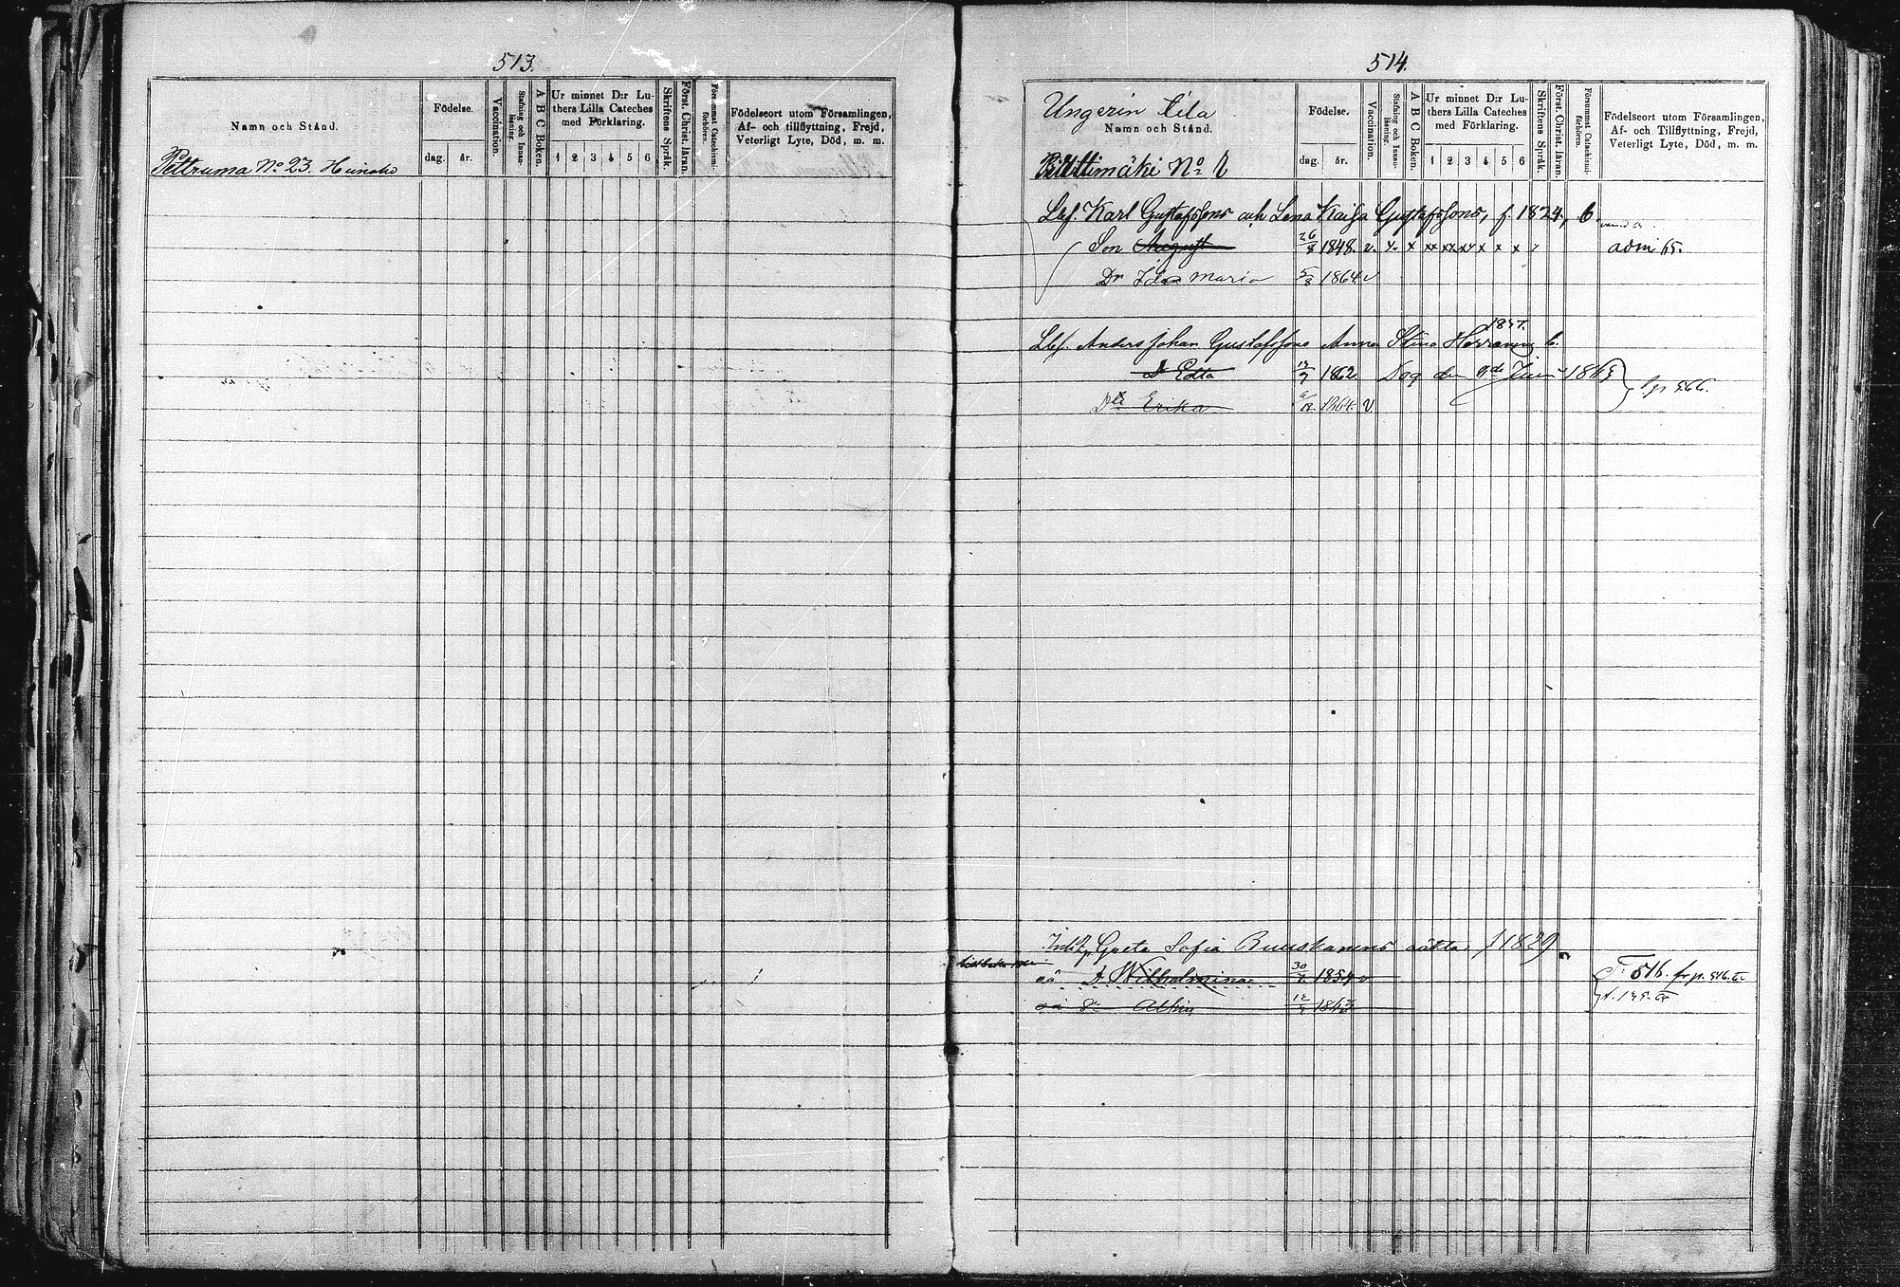 513.
Namn och Stånd.
Födelse.
dag. år.
Vaccination.
Stafning och Innan-läsning.
A B C Boken.
Ur minnet D:r Lu-
thers Lilla Cateches
med Förklaring.
1 2 3 4 5 6
Skriftens Språk.
Först. Christ. läran.
Försummat Catechismi-förhören.
Födelseort utom Församlingen,
Af- och tillflyttning, Frejd,
Veterligt Lyte, Död, m. m.
Peltruma No 23.
514.
Ungerin tila
Namn och Stånd.
Födelse.
dag. år.
Vaccination.
Stafning och Innan-läsning.
A B C Boken.
Ur minnet D:r Lu-
thers Lilla Cateches
med Förklaring.
1 2 3 4 5 6
Skriftens Språk.
Först. Christ. läran.
Försummat Catechismi-förhören.
Födelseort utom Församlingen,
Af- och Tillflyttning, Frejd,
Veterligt Lyte, Död, m. m.
No
Karl Gustafssons och Lena Kaisa Gustafssons, f. 1824, b.
Son August 26/8 1848 v. x x xx xx xx x x x adm 65.
Dr Ida Maria 5/8 1864 v
Anders Johan Gustafssons Anna Stina b.
Dr Edla 1862 Dog den 9de Juni
Dr Erika 1864 v
Greta Sofia f 1829
Dr Wilhelmina 30 1854 v T. 516. fr p. 546.
Dr 12 1863